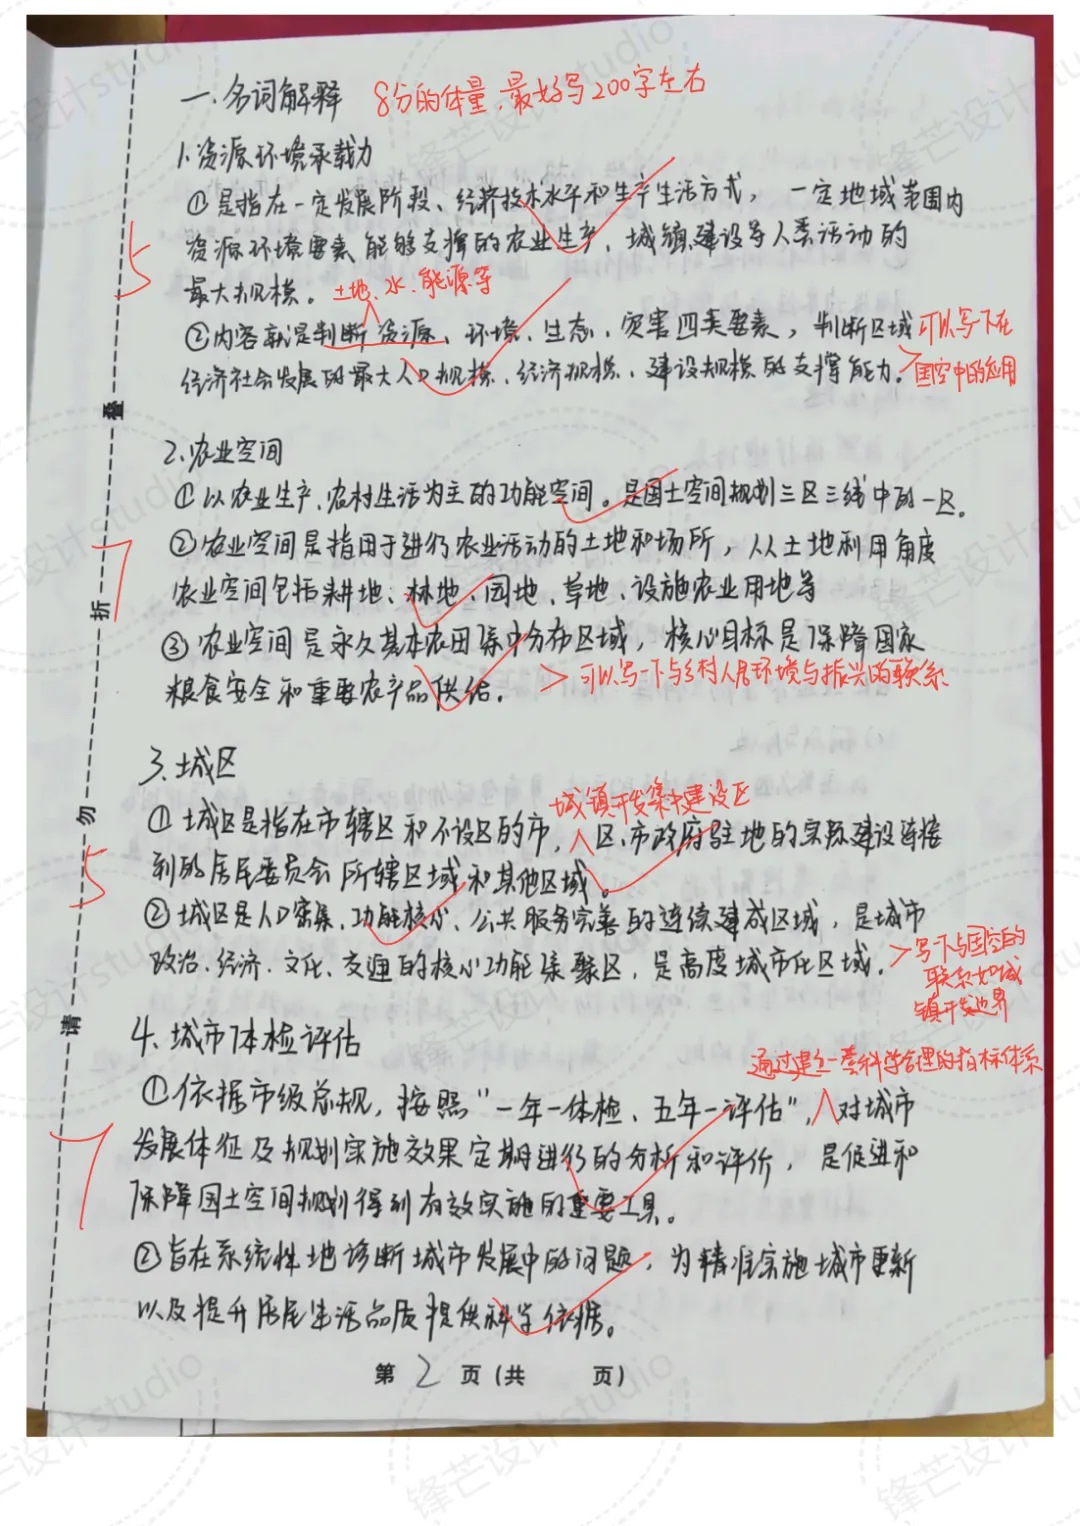 一.名词解释 8分的体量,最好写200字左右
1.资源环境承载力
①是指在一定发展阶段、经济技术水平和生产生活方式,一定地域范围内
资源环境要素能够支撑的农业生产、城镇建设等人类活动的
最大规模。土地、水、能源等
5
②内容就是判断资源、环境、生态、灾害四类要素,判断区域 可以写下在
经济社会发展的最大人口规模、经济规模、建设规模的支撑能力。国空中的应用
叠
2.农业空间
①以农业生产、农村生活为主的功能空间。是国土空间规划三区三线中的一区。
②农业空间是指用于进行农业活动的土地和场所,从土地利用角度
7
农业空间包括耕地、林地、园地、草地、设施农业用地等
折
③农业空间是永久基本农田集中分布区域,核心目标是保障国家
粮食安全和重要农产品供给。可以写一下与乡村人居环境与振兴的联系
3.城区
城镇开发集中建设区
勿
①城区是指在市辖区和不设区的市,区、市政府驻地的实际建设连接
到的居民委员会所辖区域和其他区域。
5
②城区是人口密集、功能核心、公共服务完善的连续建成区域,是城市
政治、经济、文化、交通的核心功能集聚区,是高度城市化区域。写下与国空的
联系如城
镇开发边界
请
4.城市体检评估
通过建立一套科学合理的指标体系
①依据市级总规,按照"一年一体检、五年一评估",对城市
7
发展体征及规划实施效果定期进行的分析和评价,是促进和
保障国土空间规划得到有效实施的重要工具。
②旨在系统性地诊断城市发展中的问题,为精准实施城市更新
以及提升居民生活品质提供科学依据。
第 2 页(共 页)
锋芒设计studio